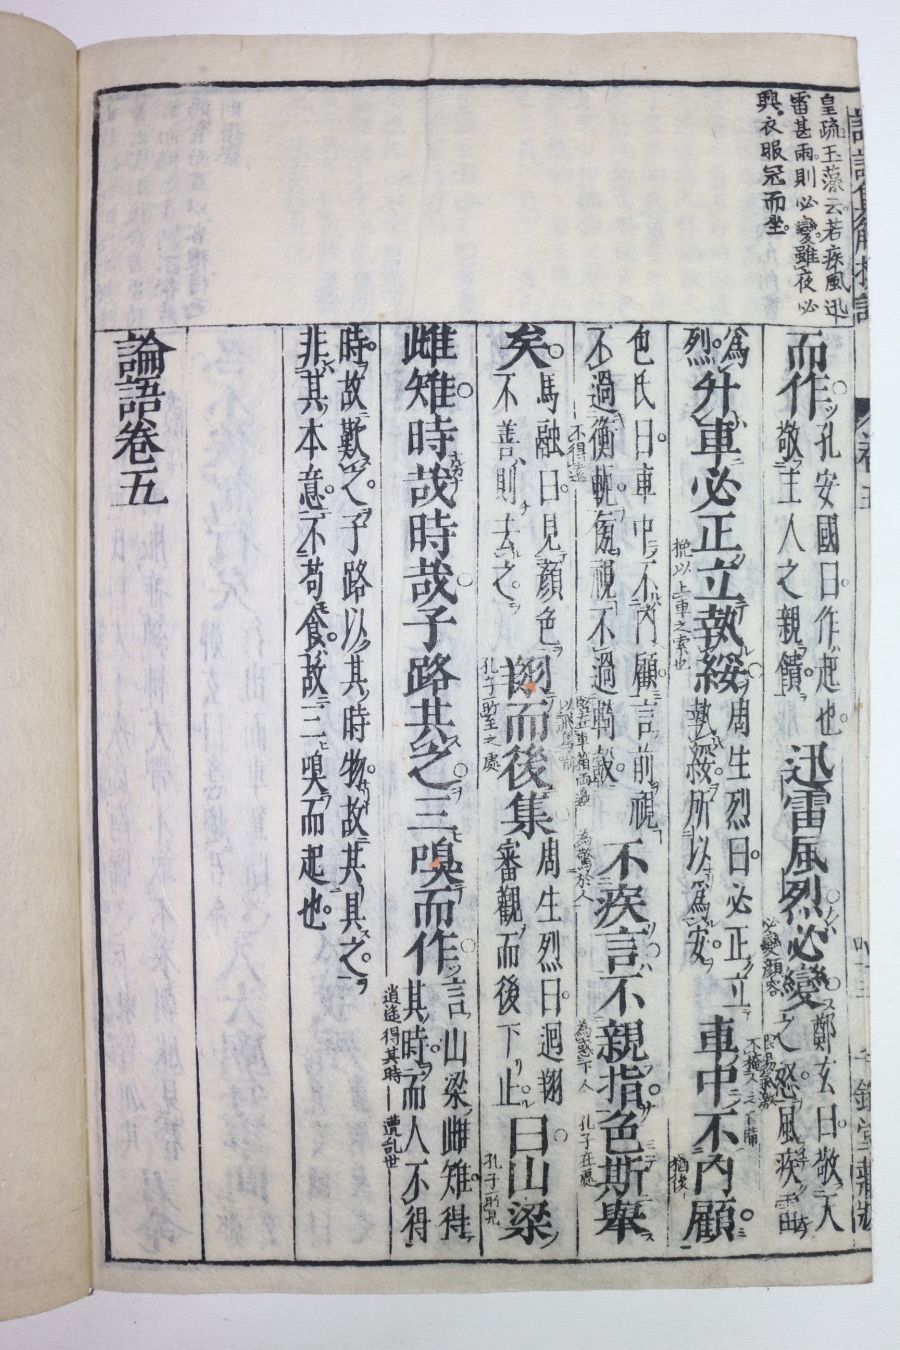 皇疏玉藻云若疾風迅
雷甚雨則必變雖夜必
興衣服冠而坐
而作孔安國曰作起也敬主人之親饋迅雷風烈必變鄭玄曰敬天之怒風疾雷
為烈升車必正立執綏周生烈曰必正立執綏所以為安車中不內顧
包氏曰車中不內顧言前視不過衡軛傍視不過輢轂不疾言不親指色斯舉
矣馬融曰見顏色不善則去之翔而後集周生烈曰迴翔審觀而後下止曰山梁
雌雉時哉時哉子路共之三嗅而作言山梁雌雉得其時而人不得
時故歎之子路以其時物故共具之
非其本意不苟食故三嗅而起也
論語卷五
必變顏容
猶後
挽以上車之索也
不得
為驚於人
為惑下人
孔子在處
孔子所至之處
孔子所見
逍遙得其時
遭乱世